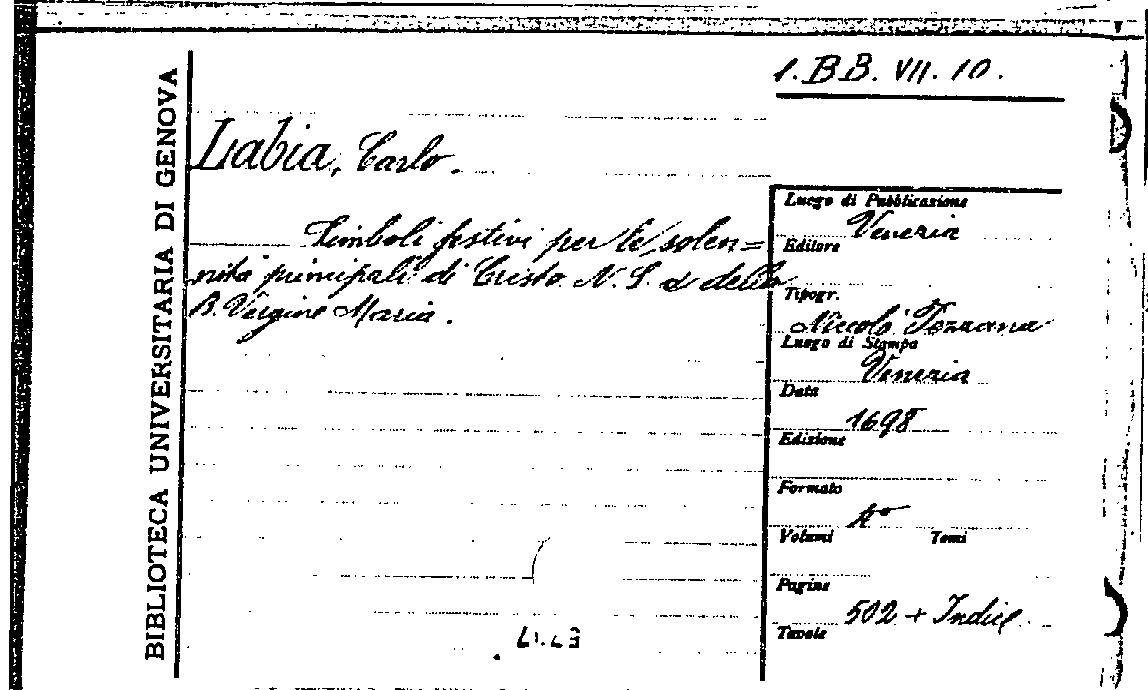 BIBLIOTECA UNIVERSITARIA DI GENOVA
1.BB.VII.10.
Labia, Carlo.
Simboli festivi per le solen=
nità principali di Cristo N. S. e della
B. Vergine Maria.
Luogo di Pubblicazione
Venezia
Editore
Tipogr.
Niccolò Pezzana
Luogo di Stampa
Venezia
Data
1698
Edizione
Formato
4°
Volumi Tomi
Pagine
502 + Indice
Tavole